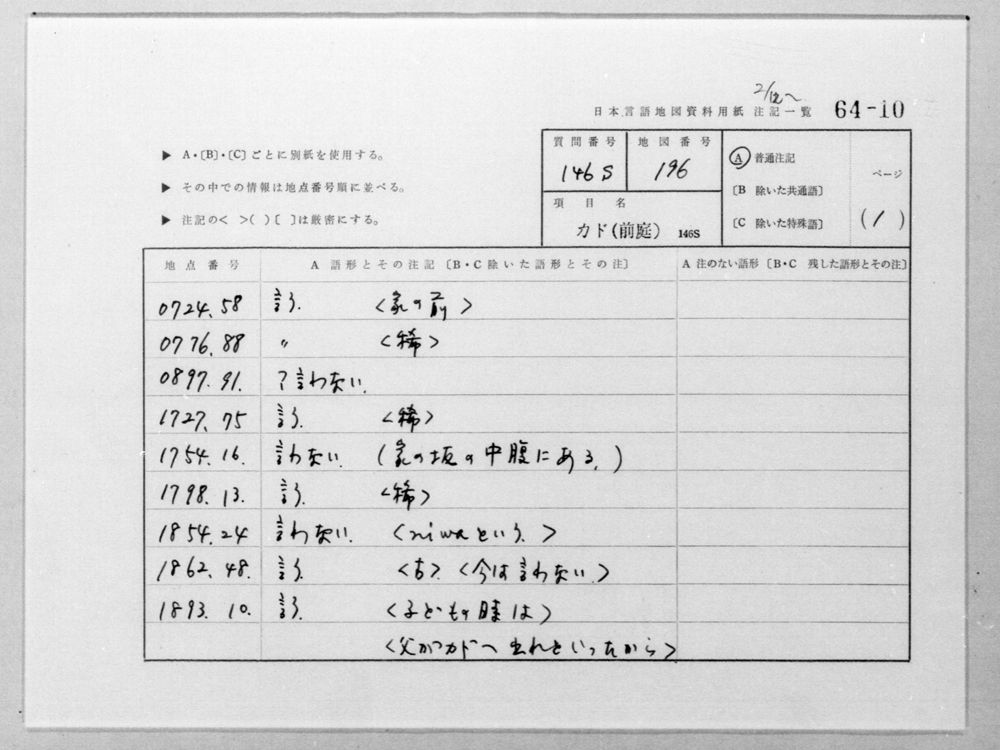 2/12〜
日本言語地図資料用紙 注記一覧 64-10
▶ A・〔B〕・〔C〕ごとに別紙を使用する。
▶ その中での情報は地点番号順に並べる。
▶ 注記の< >( )〔 〕は厳密にする。
質問番号 地図番号
146S 196
項目名
カド(前庭) 146S
A 普通注記
〔B 除いた共通語〕
〔C 除いた特殊語〕
ページ
(1)
地点番号 A 語形とその注記〔B・C 除いた語形とその注〕 A 注のない語形〔B・C 残した語形とその注〕
0724.58 言う. <家の前>
0776.88 〃 <稀>
0897.91. ?言わない.
1727.75 言う. <稀>
1754.16. 言わない. (家の坂の中腹にある.)
1798.13. 言う. <稀>
1854.24 言わない. <niwaという.>
1862.48. 言う. <古>.<今は言わない.>
1893.10. 言う. <子どもの時は>
<父がカドへ出れといったから>